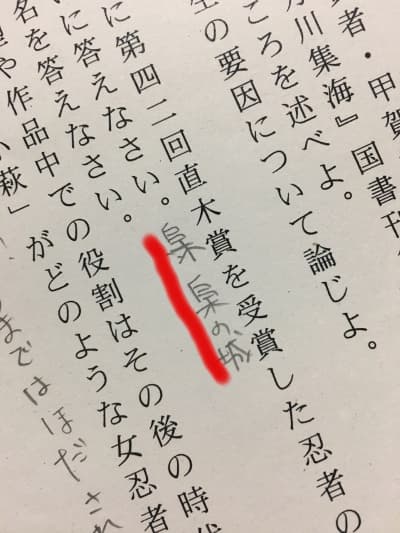 者・甲賀
川集海』国書刊
ころを述べよ。
の要因について論じよ。
に第四二回直木賞を受賞した忍者の
梟 梟の城
に答えなさい。
名を答えなさい。
や作品中での役割はその後の時代
萩」がどのような女忍者
まではほだされ